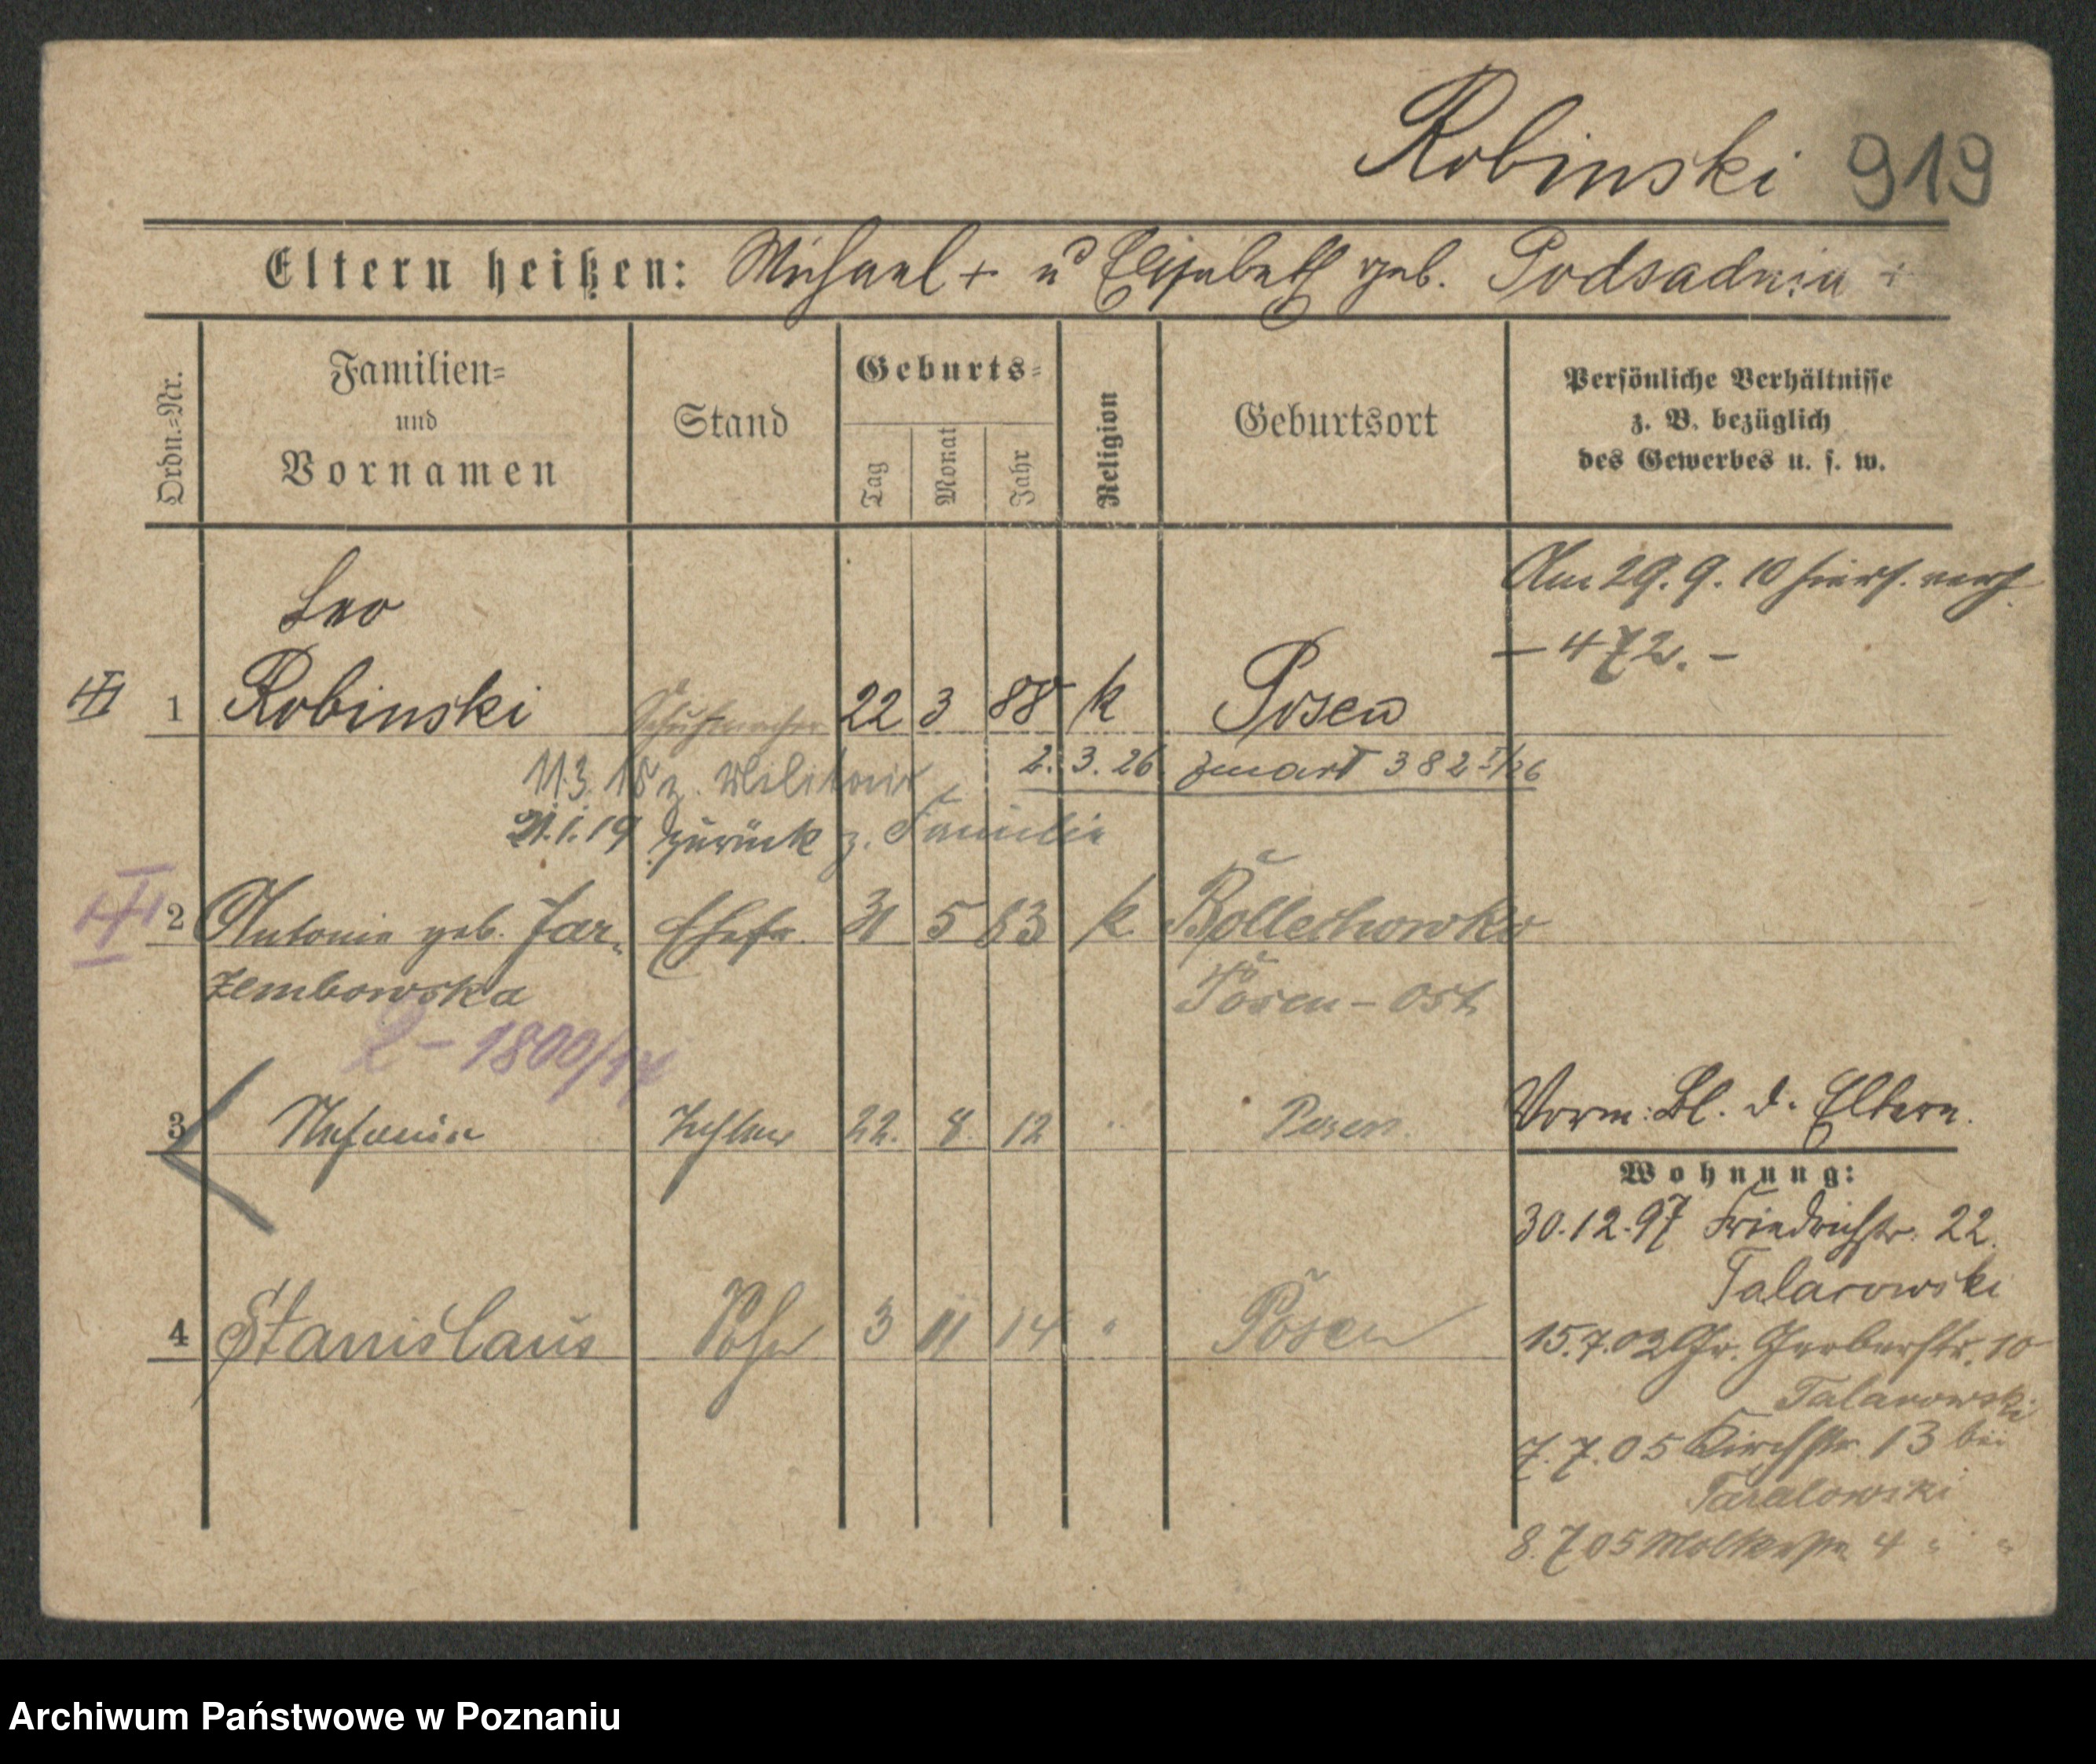 Robinski 919
Eltern heißen: Michael + u Elisabeth geb. Podsadnia +
Ordn.-Nr.
Familien-
und
Vornamen
Stand
Geburts-
Tag
Monat
Jahr
Religion
Geburtsort
Persönliche Verhältnisse
z. B. bezüglich
des Gewerbes u. s. w.
Am 29. 9. 10 hiers. verh.
– 472. –
Leo
1 Robinski Schuhmacher 22 3 88 k Posen
11.3.18 z. Militair 2. 3. 26. zmarł 382 I/26
21.1.19 zurück z. Familie
2 Antonie geb. Jar- Ehefr. 31 5 83 k. 
zembowska Posen-Ost
2-1800/14
3 Stefanie Tochter 22. 8. 12 " Posen
Vorm: Bl. d. Eltern.
Wohnung:
30.12.97 Friedrichstr. 22.
Talarowski
4 Stanislaus Sohn 3 11 14 " Posen
15.7.02 Gr. Gerberstr. 10
Talarowski
7. 7. 05 Kirchstr. 13 bei
Taralowski
8. 7 05 Moltkestr. 4 " "
Archiwum Państwowe w Poznaniu